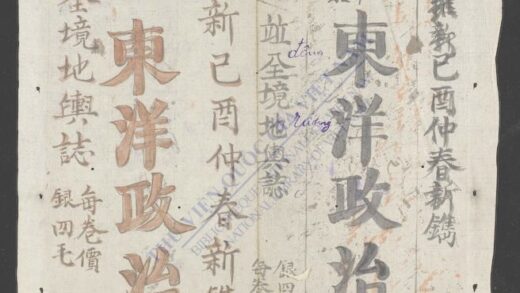 維新己酉仲春新鐫
東洋政治
並全境地輿誌
đông
dương
銀四
每卷
新己酉仲春新鐫
東洋政治
全境地輿誌
每卷價
銀四毛
THƯ VIỆN QUỐC GIA VIỆT
NATIONAL LIBRARY OF